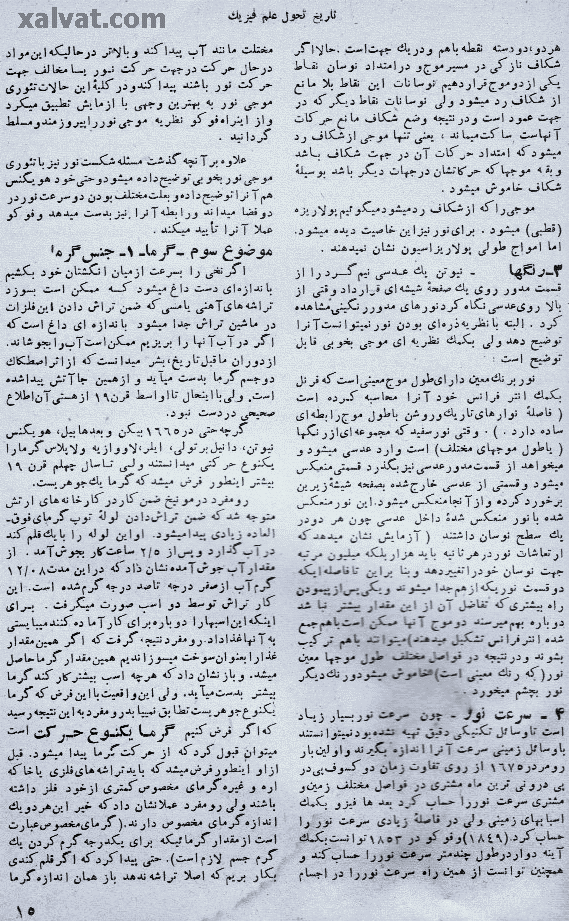 xalvat.com
تاریخ تحول علم فیزیک
هر دو، دو دسته نقطه باهم و در یک جهت است. حالا اگر
شکاف نازکی در مسیر موج و در امتداد نوسان نقاط
یکی از دو موج قرار دهیم نوسانات این نقاط بلا مانع
از شکاف رد میشود ولی نوسانات نقاط دیگر که در
جهت عمود است و در نتیجه وضع شکاف مانع حرکات
آنهاست ساکت میماند، یعنی تنها موجی از شکاف رد
میشود که امتداد حرکات آن در جهت شکاف باشد
و بقیه موجها که حرکاتشان در جهات دیگر باشد بوسیلهٔ
شکاف خاموش میشود.
موجی را که از شکاف رد میشود میگوئیم پولاریزه
(قطبی) میشود. برای نور نیز این خاصیت دیده میشود.
اما امواج طولی پولاریزاسیون نشان نمیدهند.
۳ـ رنگها ـ نیوتن یک عدسی نیم گرد را از
قسمت مدور روی یک صفحهٔ شیشه‌ای قرار داد و قتی از
بالا روی عدسی نگاه کرد نورهای مدور رنگینی مشاهده
کرد. البته با نظریه ذره‌ای بودن نور نمیتوانست آنرا
توضیح دهد ولی بکمک نظریه‌ای موجی بخوبی قابل
توضیح است:
نور بر نگ معین دارای طول موج معینی است که فرنل
بکمک انتر فرانس خود آنرا محاسبه کرده است
(فاصلهٔ نوارهای تاریک و روشن با طول موج رابطه‌ای
ساده دارد.). وقتی نور سفید که مجموعه‌ای از رنگها
(یا طول موجهای مختلف) است وارد عدسی میشود و
میخواهد از قسمت مدور عدسی نیز بگذرد قسمتی منعکس
میشود و قسمتی از عدسی خارج شده بصفحه شیشهٔ زیرین
برخورد کرده و از آنجا منعکس میشود. این نور منعکس
شده با نور منعکس شدهٔ داخل عدسی چون هر دو در
یک سطح نوسان داشتند (آزمایش نشان میدهد که
ارتعاشات نور در هر ثانیه باید هزار بلکه میلیون مرتبه
جهت نوسان خود را تغییر دهد و بنا براین تا فاصله‌ایکه
دو قسمت نوریکه از هم جدا میشوند و یکی پس از پیمودن
راه بیشتری که تفاضل آن از این مقدار بیشتر نباشد
دوباره بهم میرسند دو موج آنها ممکن است باهم جمع
شده انتر فرانس تشکیل میدهند) میتوانند باهم ترکیب
بشوند و در نتیجه در فواصل مختلف طول موجها معین
نور (که رنگ معینی است) خاموش میشود و رنگ دیگر
نور بچشم میخورد.
۴ ـ سرعت نور ـ چون سرعت نور بسیار زیاد
است تا وسائل تکنیکی دقیق تهیه نشده بود نمیتوانستند
با وسائل زمینی سرعت آنرا اندازه بگیرند و اولین بار
رومر در ۱۶۷۵ از روی تفاوت زمان دو کسوف پی در
پی درونی ترین ماه مشتری در فواصل مختلف زمین و
مشتری سرعت نور را حساب کرد بعدها فیزو بکمک
اسبابهای زمینی ولی در فاصلهٔ زیادی سرعت نور را
حساب کرد. (۱۸۴۹) و فوکو در ۱۸۵۳ توانست بکمک
آینه دوار در طول چند متر سرعت نور را حساب کند و
همچنین توانست از همین راه سرعت نور را در اجسام
مختلف مانند آب پیدا کند و بالاتر در حالیکه این مواد
در حال حرکت در جهت حرکت نور یا مخالف جهت
حرکت نور باشند پیدا کند و در کلیهٔ این حالات تئوری
موجی نور به بهترین وجهی با آزمایش تطبیق میکرد
و از اینراه فوکو نظریه موجی نور را پیروزمند و مسلط
گردانید.
علاوه بر آنچه گذشت مسئله شکست نور نیز با تئوری
موجی نور بخوبی توضیح داده میشود و حتی خود هویگنس
هم آنرا توضیح داده و بعلت مختلف بودن دو سرعت نور در
دو فضا میداند و رابطه آنرا نیز بدست میدهد و فوکو
عملا آنرا تأیید میکند.
موضوع سوم ـ گرما ـ ۱ـ جنس گرما
اگر نخی را بسرعت از میان انگشتان خود بکشیم
باندازه‌ای دست داغ میشود که ممکن است بسوزد
تراشه‌های آهنی یا مسی که ضمن تراش دادن این فلزات
در ماشین تراش جدا میشود باندازه‌ای داغ است که
اگر در آب آنها را بریزیم ممکن است آب را بجوشاند.
از دوران ماقبل تاریخ، بشر میدانست که از اثر اصطکاک
دو جسم گرما بدست میآید و از همین جا آتش پیدا شده
است. ولی با اینحال تا اواسط قرن ۱۹ از هستی آن اطلاع
صحیحی در دست نبود.
گرچه حتی در ۱۶۶۵ بیکن و بعدها بیل، هویگنس
نیوتن، دانیل برنولی، ایلر، لاووازیه و لاپلاس گرما را
یکنوع حرکتی میدانستند ولی تا سال چهلم قرن ۱۹
بیشتر اینطور فرض میشد که گرما یک جوهریست.
رومفرد در مونیخ ضمن کار در کارخانه‌های ارتش
متوجه شد که ضمن تراش دادن لولهٔ توپ گرمای فوق‌ـ
العاده زیادی پیدا میشود. او این لوله را با یک قلم کند
در آب گذارد و پس از ۲/۵ ساعت کار بجوش آمد. از
مقدار آب جوش آمده نشان داد که در این مدت ۱۲/۰۸
گرم آب از صفر درجه تا صد درجه گرم شده است. این
کار تراش توسط دو اسب صورت میگرفت. برای
اینکه این اسبها را دوباره برای کار آماده کنند میبایستی
به آنها غذا داد. رومفرد نتیجه گرفت که اگر همین مقدار
غذا را بعنوان سوخت میسوزاندیم همین مقدار گرما حاصل
میشد. و باز نشان داد که هر چه اسب بیشتر کار کند گرما
بیشتر بدست میآید. ولی این واقعیت با این فرض که گرما
یکنوع جوهریست تطابق نمییابد و رومفرد به این نتیجه رسید
که اگر فرض کنیم گرما یکنوع حرکت است
میتوان قبول کرد که از حرکت گرما پیدا میشود. قبل
از او اینطور فرض میشد که باید تراشه‌های فلزی یا خاکه
اره و غیره گرمای مخصوص کمتری از خود فلز داشته
باشند ولی رومفرد عملا نشان داد که خیر این هر دو یک
اندازه گرمای مخصوص دارند. (گرمای مخصوص عبارت
است از مقدار گرمائیکه برای یکدرجه گرم کردن یک
گرم جسم لازم است). حتی پیدا کرد که اگر قلم کندی
بکار بریم که اصلا تراشه ندهد باز همان اندازه گرما
۱۵